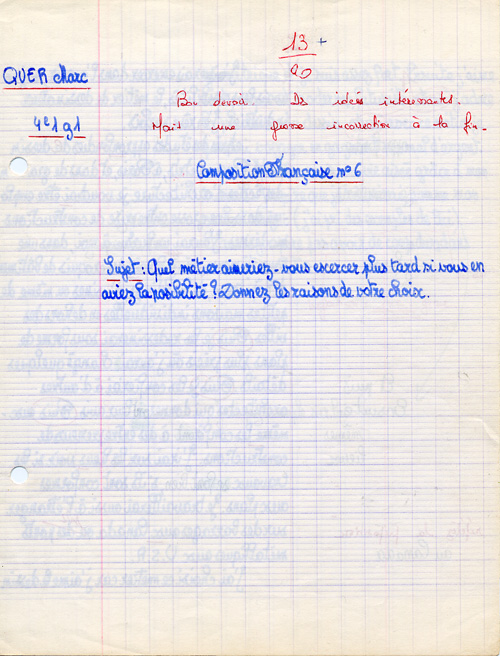 13 +
20
QUER Marc
Bon devoir. Des idées intéressantes.
4e1g1
Mais une grosse incorrection à la fin.
Composition Française n°6
Sujet : Quel métier aimeriez-vous escercer plus tard si vous en
aviez la posibilité ? Donnez les raisons de votre choix.